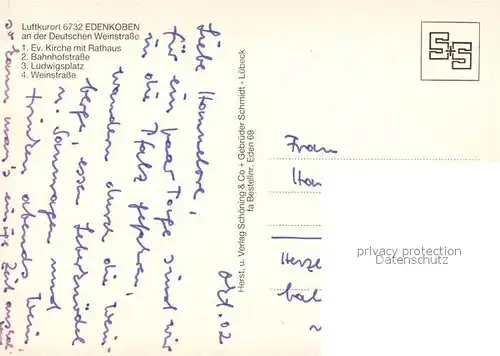 Luftkurort 6732 EDENKOBEN
an der Deutschen Weinstraße
1. Ev. Kirche mit Rathaus
2. Bahnhofstraße
3. Ludwigsplatz
4. Weinstraße
Okt. 02
Liebe Hannelore,
für ein paar Tage sind wir
in die Pfalz gefahren,
wandern durch die Wein-
berge, essen Leberknödel
u. Saumagen und
trinken abends Wein
so kann man's einige Zeit aushal-
Herst. u. Verlag Schöning & Co + Gebrüder Schmidt - Lübeck
fa Bestellnr. Eden 69
S+S
Frau
Han
Herze
bal
privacy protection
Datenschutz